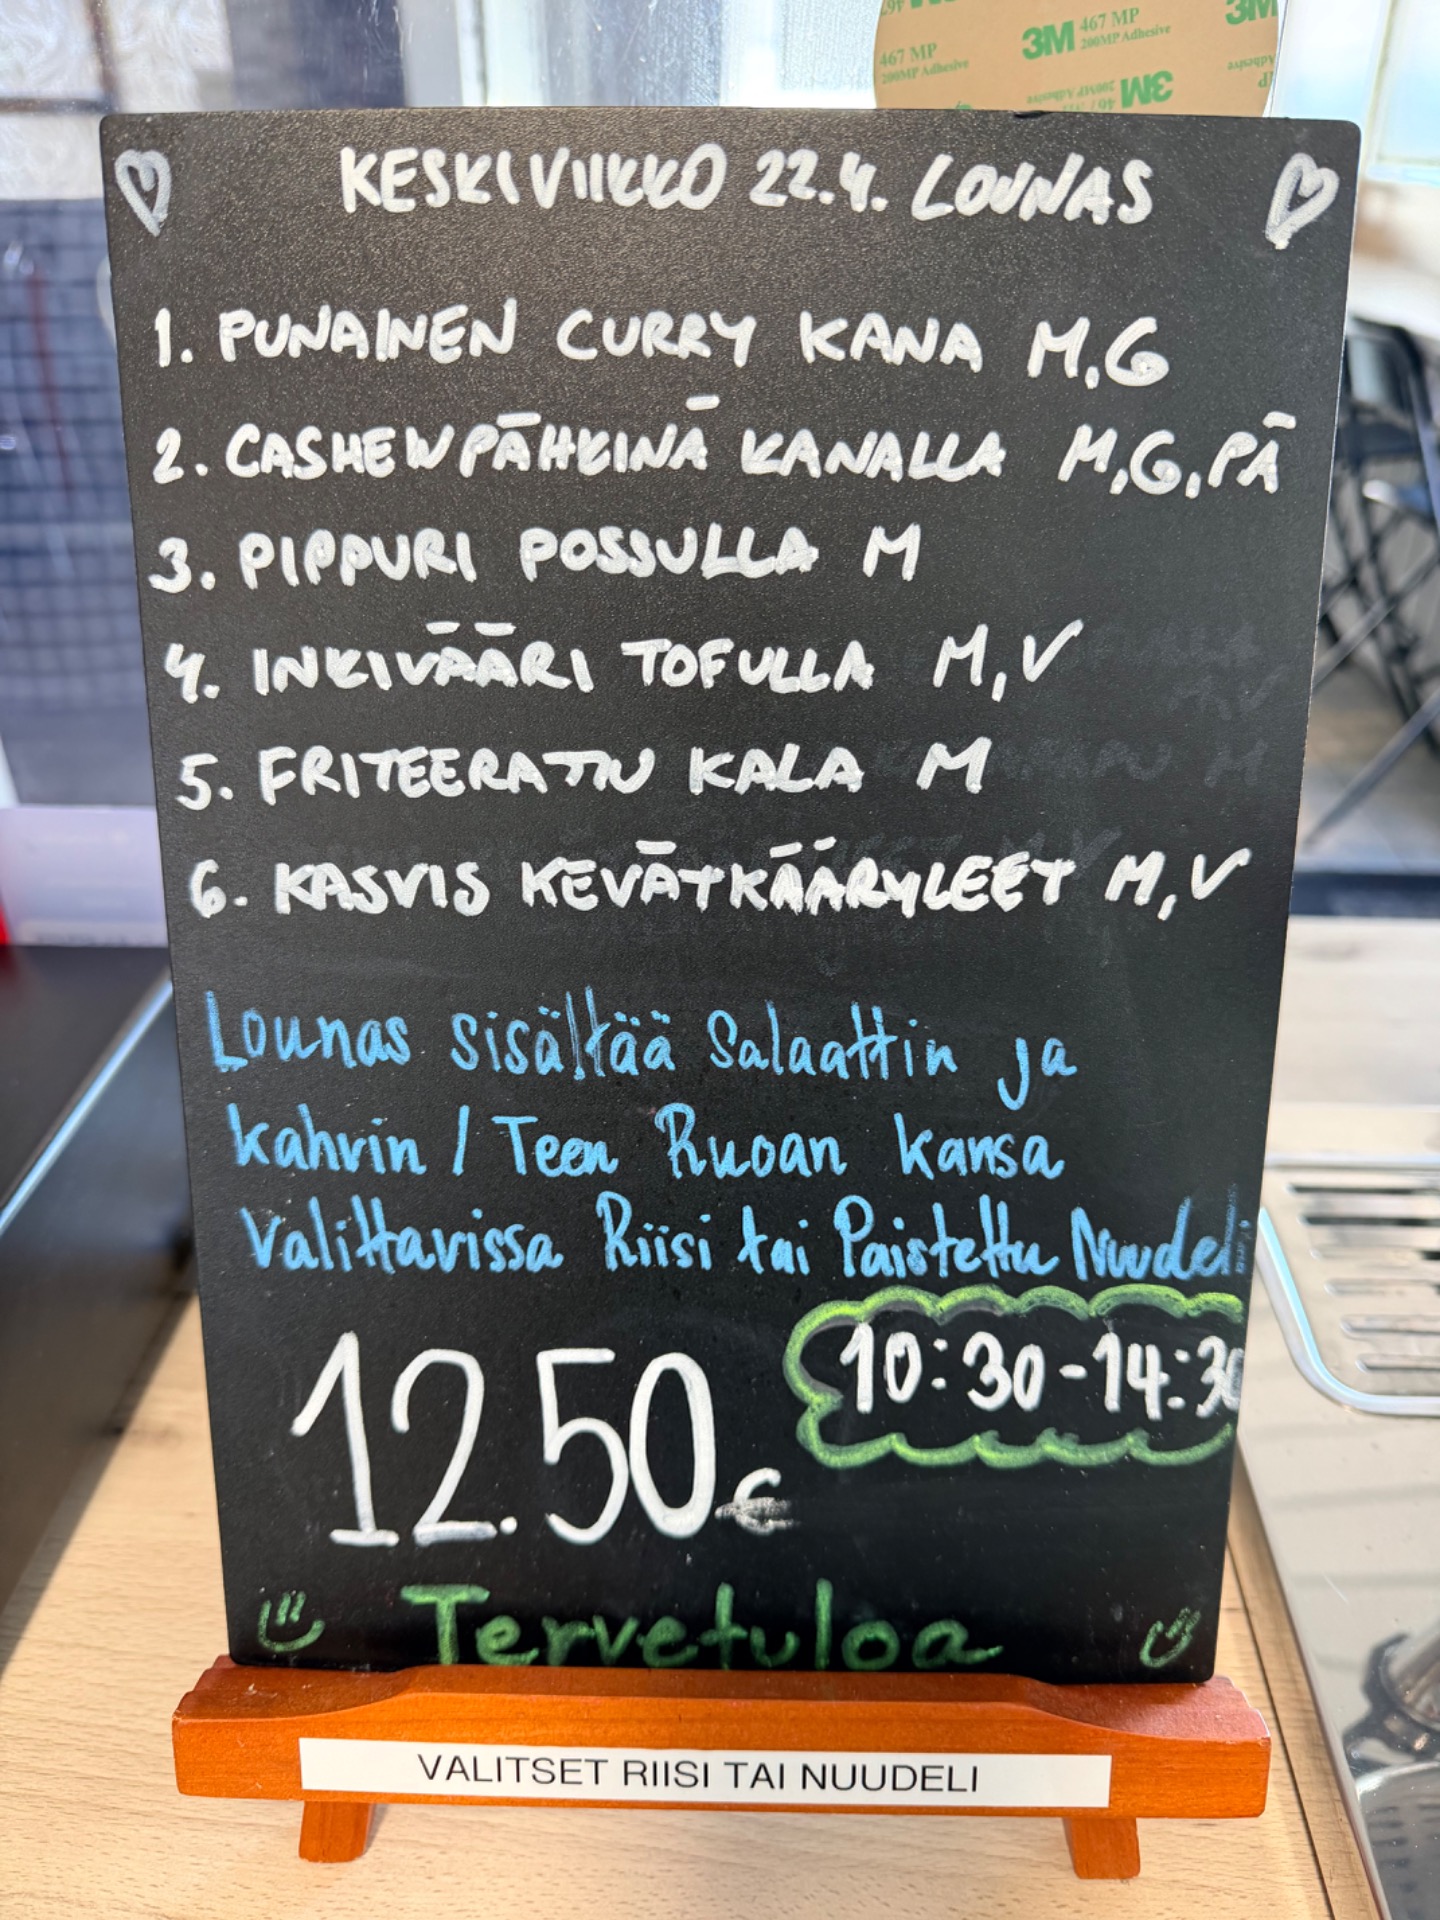 467 MP
200MP Adhesive
3M 467 MP
200MP Adhesive
3M
3M
KESKIVIIKKO 22.4. LOUNAS
1. PUNAINEN CURRY KANA M,G
2. CASHEWPÄHKINÄ KANALLA M,G,PÄ
3. PIPPURI POSSULLA M
4. INKIVÄÄRI TOFULLA M,V
5. FRITEERATTU KALA M
6. KASVIS KEVÄTKÄÄRYLEET M,V
Lounas sisältää Salaattin ja
kahvin / Teen Ruoan kansa
Valittavissa Riisi tai Paistettu Nuudeli
10:30-14:30
12.50€
Tervetuloa
VALITSET RIISI TAI NUUDELI